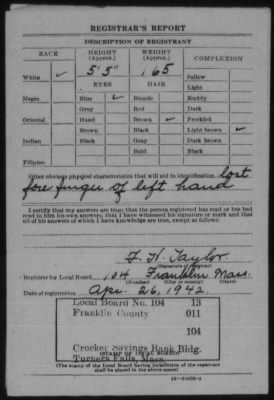 REGISTRAR'S REPORT
DESCRIPTION OF REGISTRANT
RACE HEIGHT (Approx.) WEIGHT (Approx.) COMPLEXION
White ✓ 5'5" 165 Sallow
EYES HAIR Light
Negro Blue ✓ Blonde Ruddy
Gray Red Dark
Oriental Hazel Brown ✓ Freckled
Brown Black Light brown ✓
Indian Black Gray Dark brown
Bald Black
Filipino
Other obvious physical characteristics that will aid in identification lost
fore finger of left hand
I certify that my answers are true; that the person registered has read or has had
read to him his own answers; that I have witnessed his signature or mark and that
all of his answers of which I have knowledge are true, except as follows:
F. H. Taylor
(Signature of registrar)
Registrar for Local Board 104 Franklin Mass.
(Number) (City or county) (State)
Date of registration Apr. 26, 1942
Local Board No. 104 13
Franklin County 011
104
Crocker Savings Bank Bldg.
Turners Falls, Mass.
(STAMP OF LOCAL BOARD)
(The stamp of the Local Board having jurisdiction of the registrant
shall be placed in the above space)